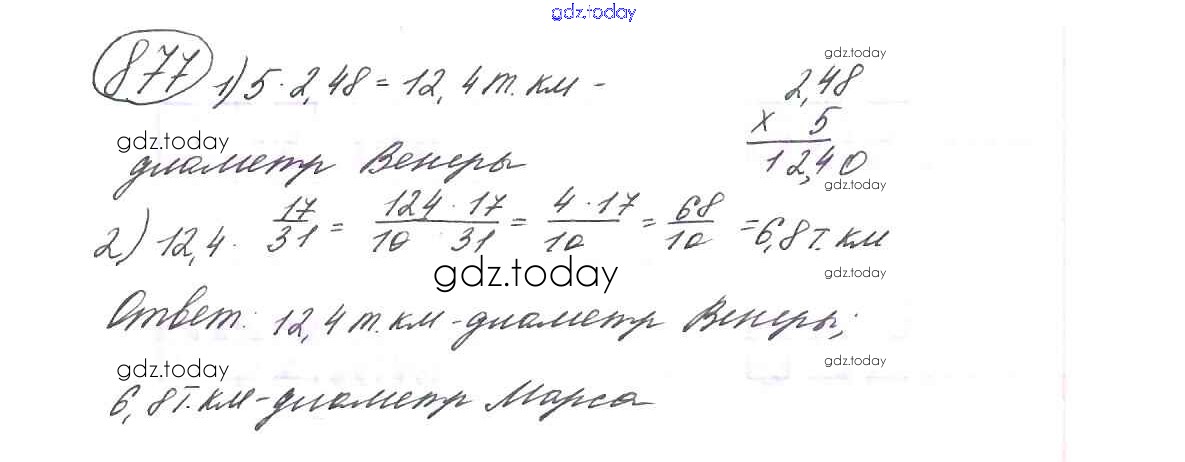 gdz.today
877 1) 5 · 2,48 = 12,4 т. км –
gdz.today
2,48
x 5
12,40
gdz.today
gdz.today
диаметр Венеры
2) 12,4 · 17/31 = 124 · 17/10 31 = 4 · 17/10 = 68/10 = 6,8 т. км
gdz.today
gdz.today
Ответ: 12,4 т. км – диаметр Венеры;
gdz.today
gdz.today
6,8 т. км – диаметр Марса